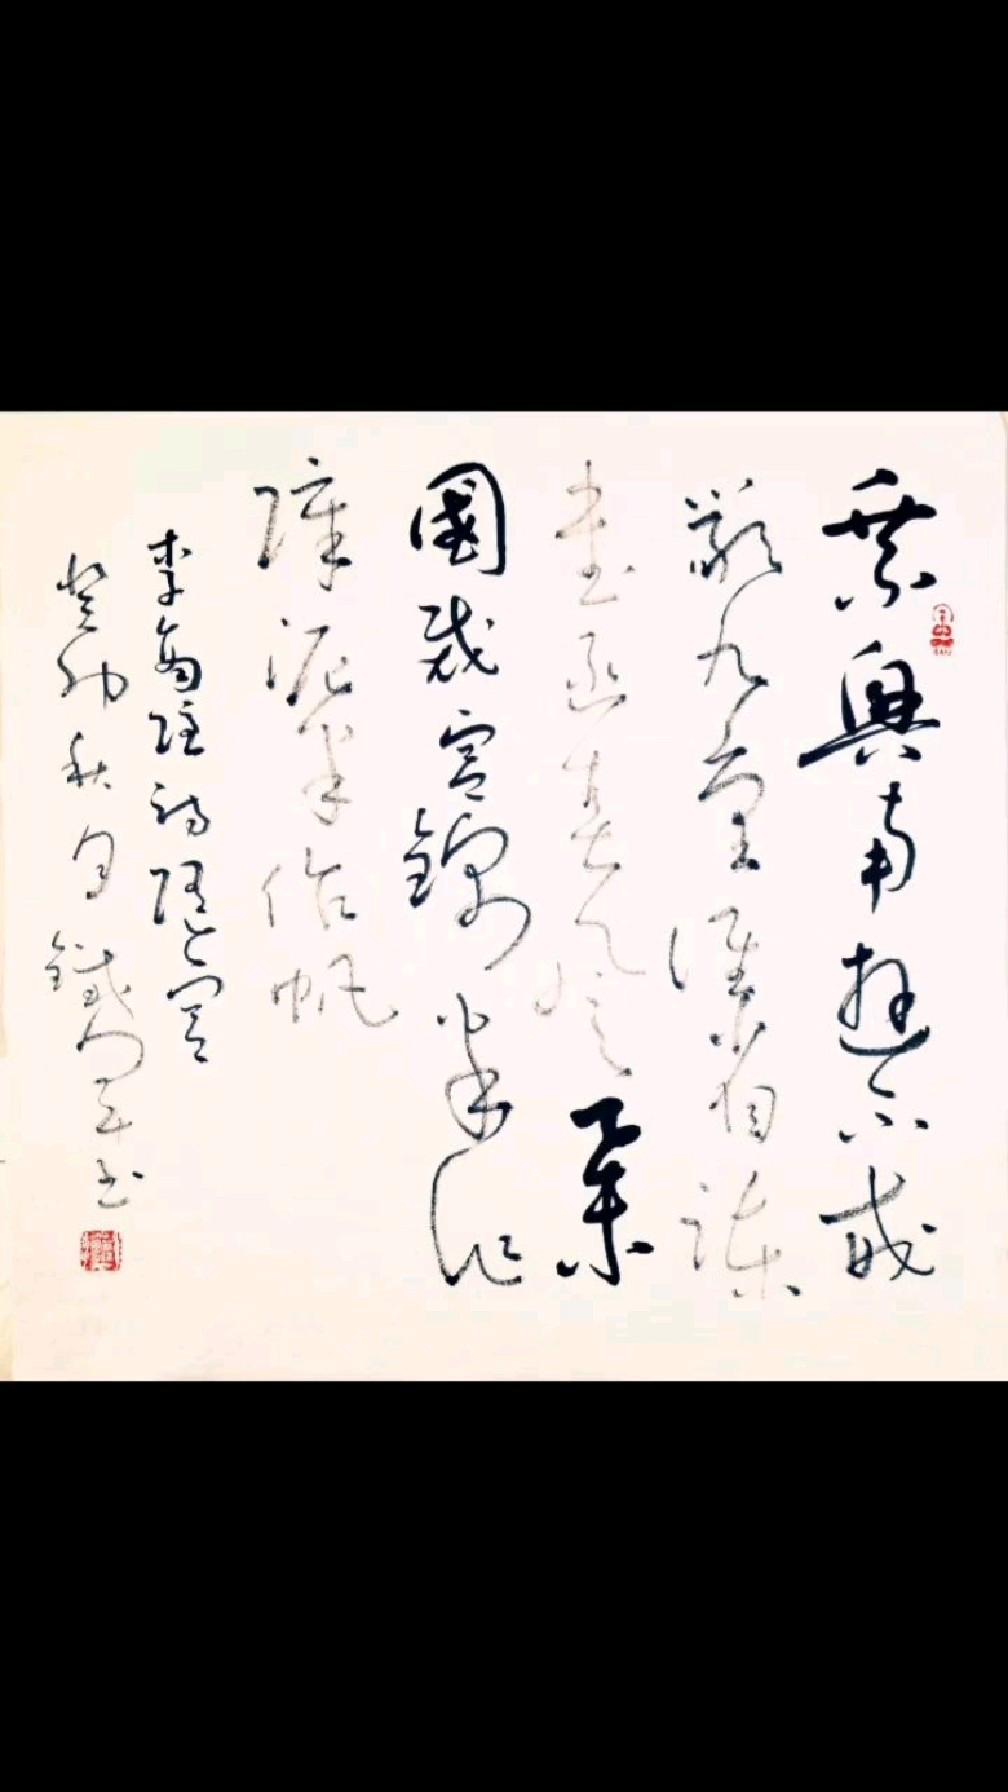 乘興南遊不戒
嚴九重誰省諫
書函春風舉
國裁宮錦半作
障泥半作帆
李商隱詩隋宮
癸卯秋月鐵軍書